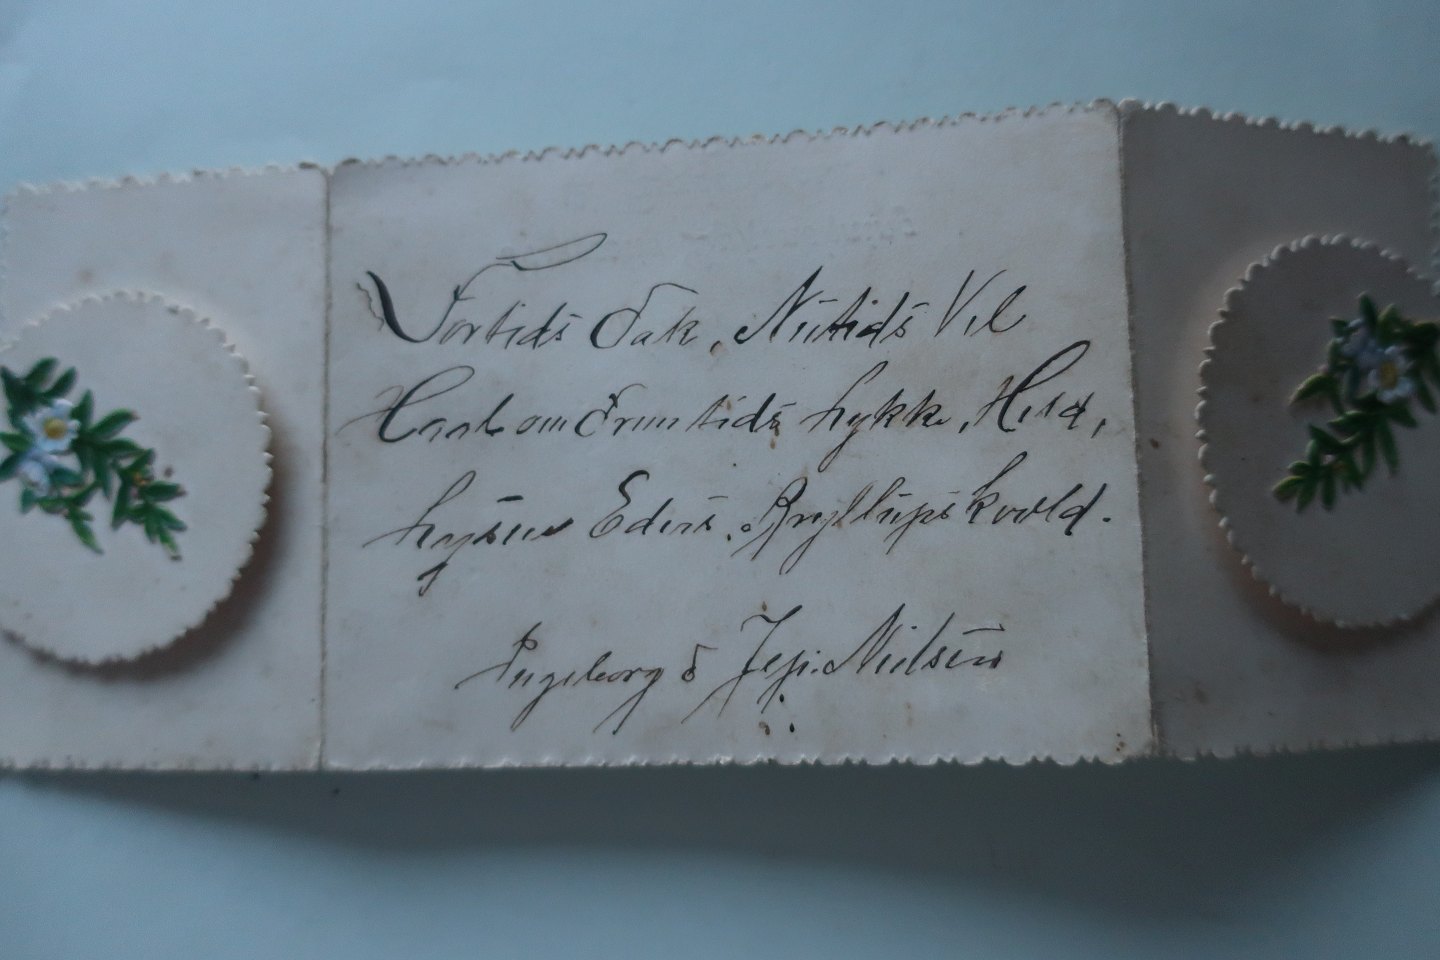 Fortids Tak, Nutids Vel
Haab om Fremtids Lykke, Held,
lyser Eders Bryllupskvæld.
Ingeborg & Jep. Nielsen